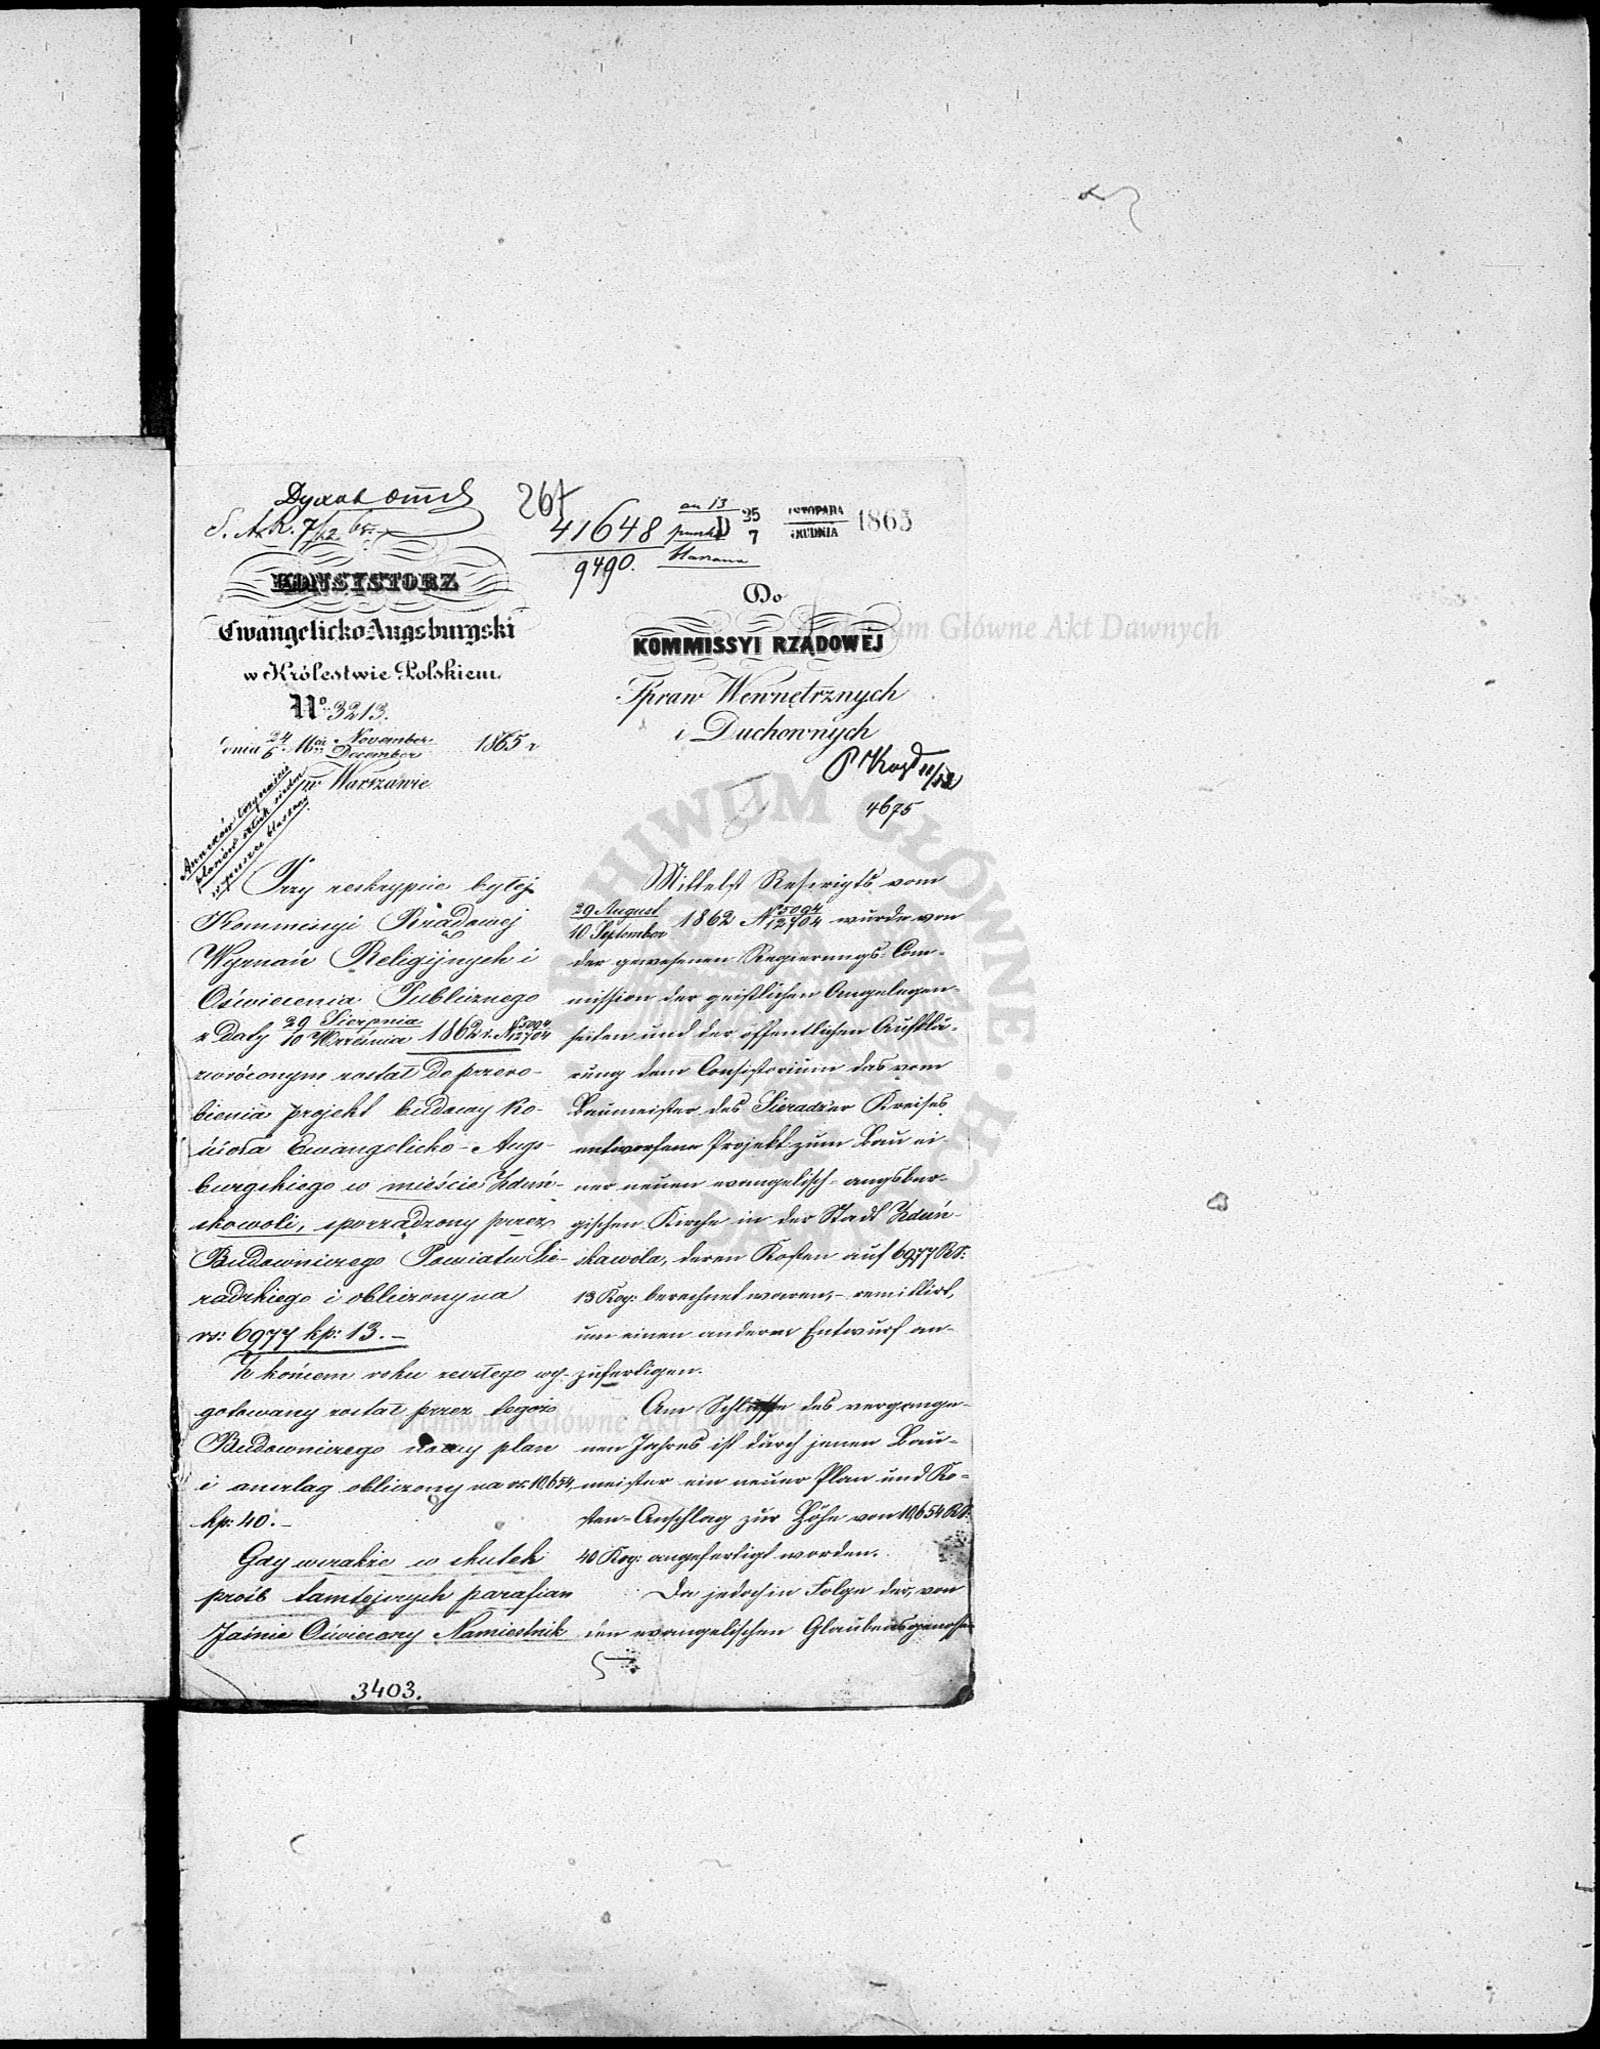 267
41648
9490.
an 13
D 25 LISTOPADA 1865
7 GRUDNIA
S. A. R. 7/12 65
KONSYSTORZ
Ewangelicko-Augsburgski
w Królestwie Polskiem.
No. 3213.
dnia 24/6 November/December 1865 r
w Warszawie.
Do
KOMMISSYI RZĄDOWÉJ
Spraw Wewnętrznych
i Duchownych
4675
Przy reskrypcie byłéj
Kommissyi Rządowéj
Wyznań Religijnych i
Oświecenia Publicznego
z Daty 29 Sierpnia/10 Września 1862 r. N 5094/12704
zwróconym został do przero-
bienia projekt budowy Ko-
ścioła Ewangelicko-Augs-
burgskiego w mieście Zduń-
skowoli, sporządzony przez
Budowniczego Powiatu Sie-
radzkiego i obliczony na
rs: 6977 kp: 13.-
Z końcem roku zeszłego wy-
gotowany został przez tegoż
Budowniczego nowy plan
i anszlag obliczony na rs. 10,654,
kp: 40.-
Gdy wszakże w skutek
prośb tamtejszych parafian
Jaśnie Oświecony Namiestnik
3403.
Mittelst Rescripts vom
29 August/10 September 1862 N 5094/12704 wurde von
der gewesenen Regierungs-Com-
mission der geistlichen Angelegen-
heiten und der öffentlichen Aufklä-
rung dem Consistorium das vom
Baumeister des Sieradzer Kreises
entworfene Projekt zum Bau ei-
ner neuen evangelisch-augsbur-
gischen Kirche in der Stadt Zduń-
skawola, deren Kosten auf 6977 RS:
13 Kop: berechnet waren,- remittirt,
um einen anderen Entwurf an-
zufertigen.
Am Schlusse des vergange-
nen Jahres ist durch jenen Bau-
meister ein neuer Plan und Ko-
sten-Anschlag zur Höhe von 10,654 RS.
40 Kop: angefertigt worden.
Da jedoch in Folge der, von
den evangelischen Glaubensgenossen
Archiwum Główne Akt Dawnych
Archiwum Główne Akt Dawnych